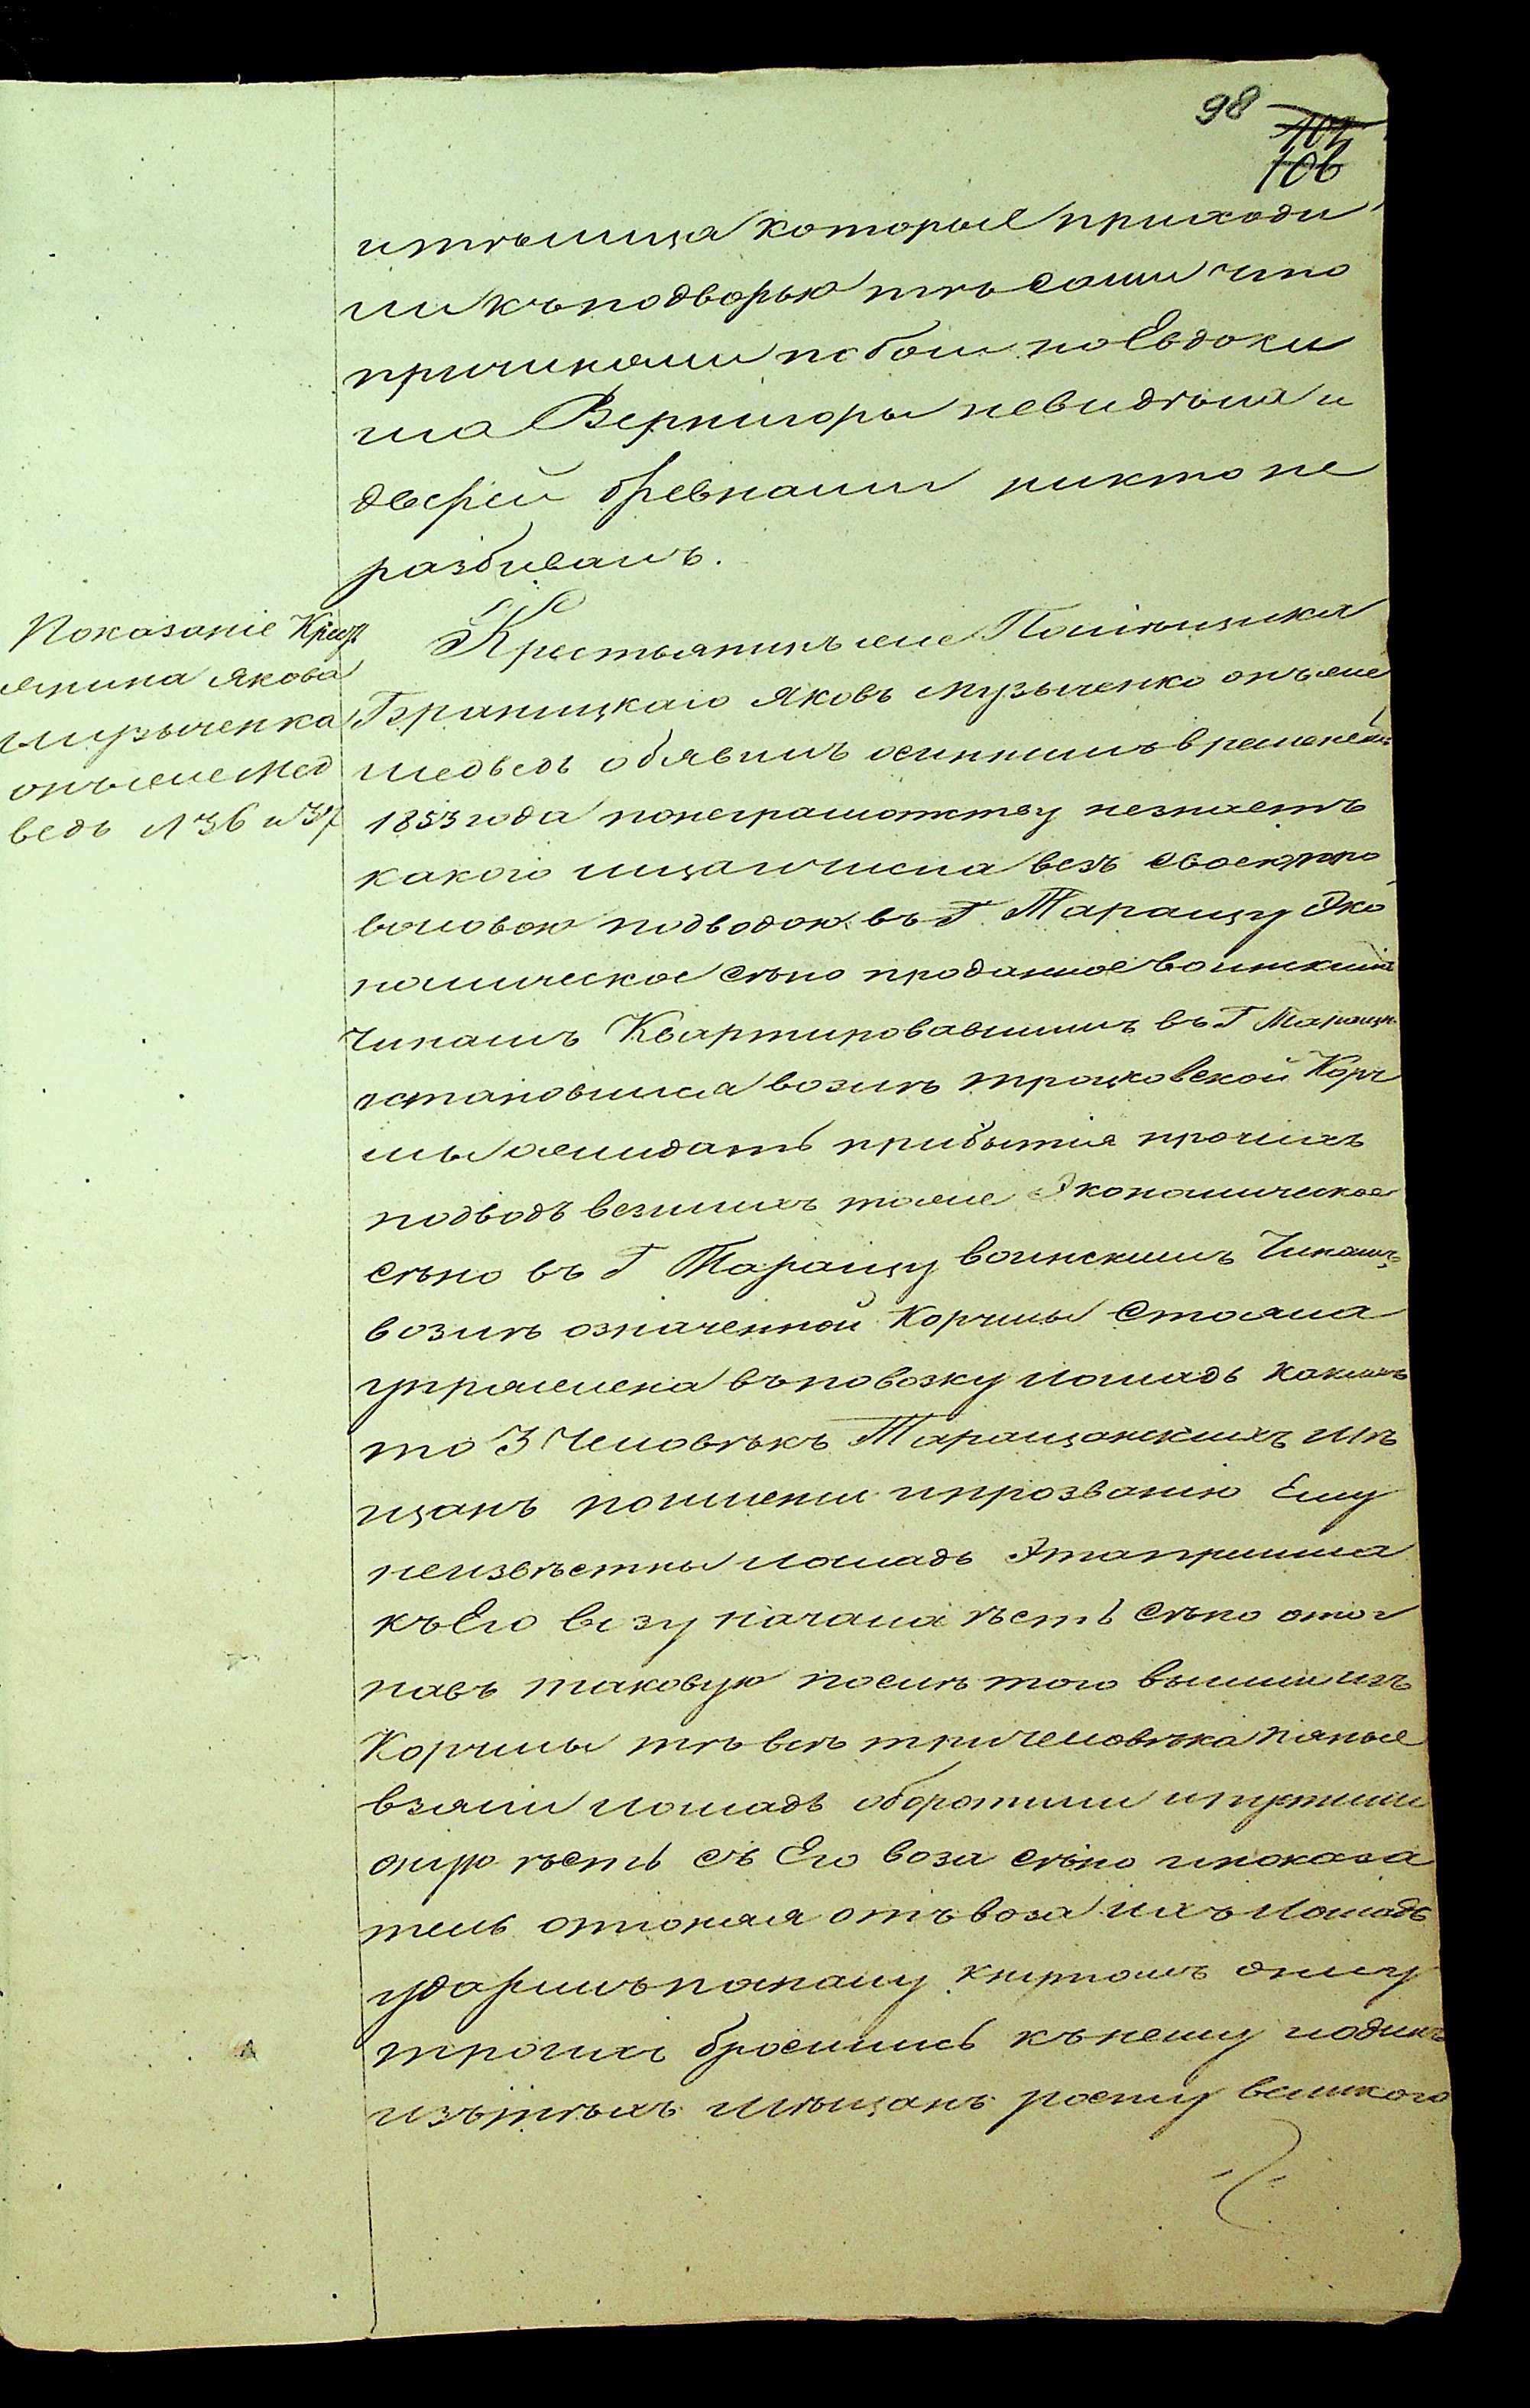 98
102
106
и тѣ лица которые приходи
ли къ подворью тѣ сами что
причиняли побои но Евдоки
ма Вернигоры невидѣла и
дверей бревнами никто не
разбивалъ.
Показаніе Крест
янина Якова
Музыченка
онъ же Мед
ведь Л 36 и 37
Крестьянинъ же Помѣщика
Браницкаго Яковъ Музыченко онъ же
медведь обявилъ осиннимъ временемъ
1853 года понеграмотству незнаетъ
какого мца и числа везъ своею
воловою подводою въ Г. Таращу Эко
номическое сѣно проданное воинскимъ
Чинамъ Квартировавшимъ въ Г Тараще
остановился возлѣ трощковской Корч
мы ожидать прибытія прочихъ
подводъ везшихъ тоже Экономическое
сѣно въ Г Таращу воинскимъ Чинамъ
возлѣ означенной Корчмы Стояла
упряжена въ повозку лошадь какихъ
то 3 Человѣкъ Таращанскихъ мѣ
щанъ по имени и прозванію Ему
неизвѣстны лошадь Эта пришла
къ Его возу начала ѣсть сѣно отог
навъ таковую послѣ того вышли изъ
Корчмы тѣ всѣ три человѣка пяные
взяли лошадь оборотили и пустили
оную ѣсть съ Его воза сѣно и показа
тель отгоняя отъ воза ихъ лошадь
ударилъ попалу кнутомъ
бросились къ нему и одинъ
изъ тѣхъ мѣщанъ росту великого